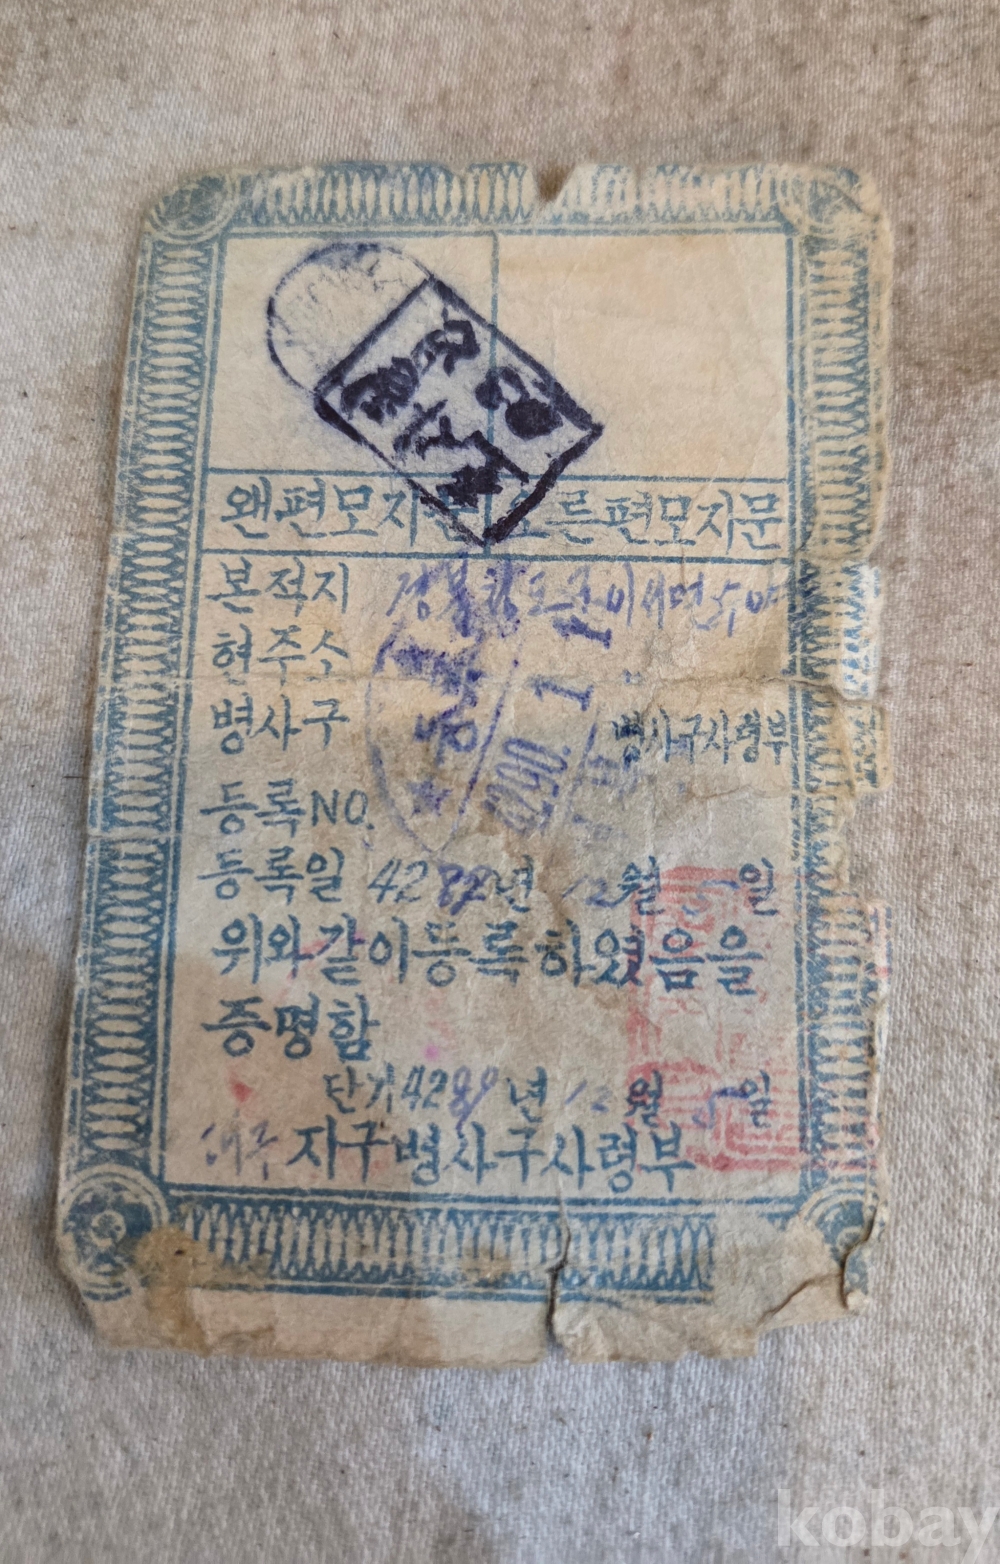 왠편모자문 오른편모자문
본적지 경북청도군이서면
현주소
병사구 병사구사령부
4290. 1. 1
등록NO.
등록일 42 년 12월 5일
위와같이등록하였음을
증명함
단기4289년 12월 5일
대구지구병사구사령부
kobay